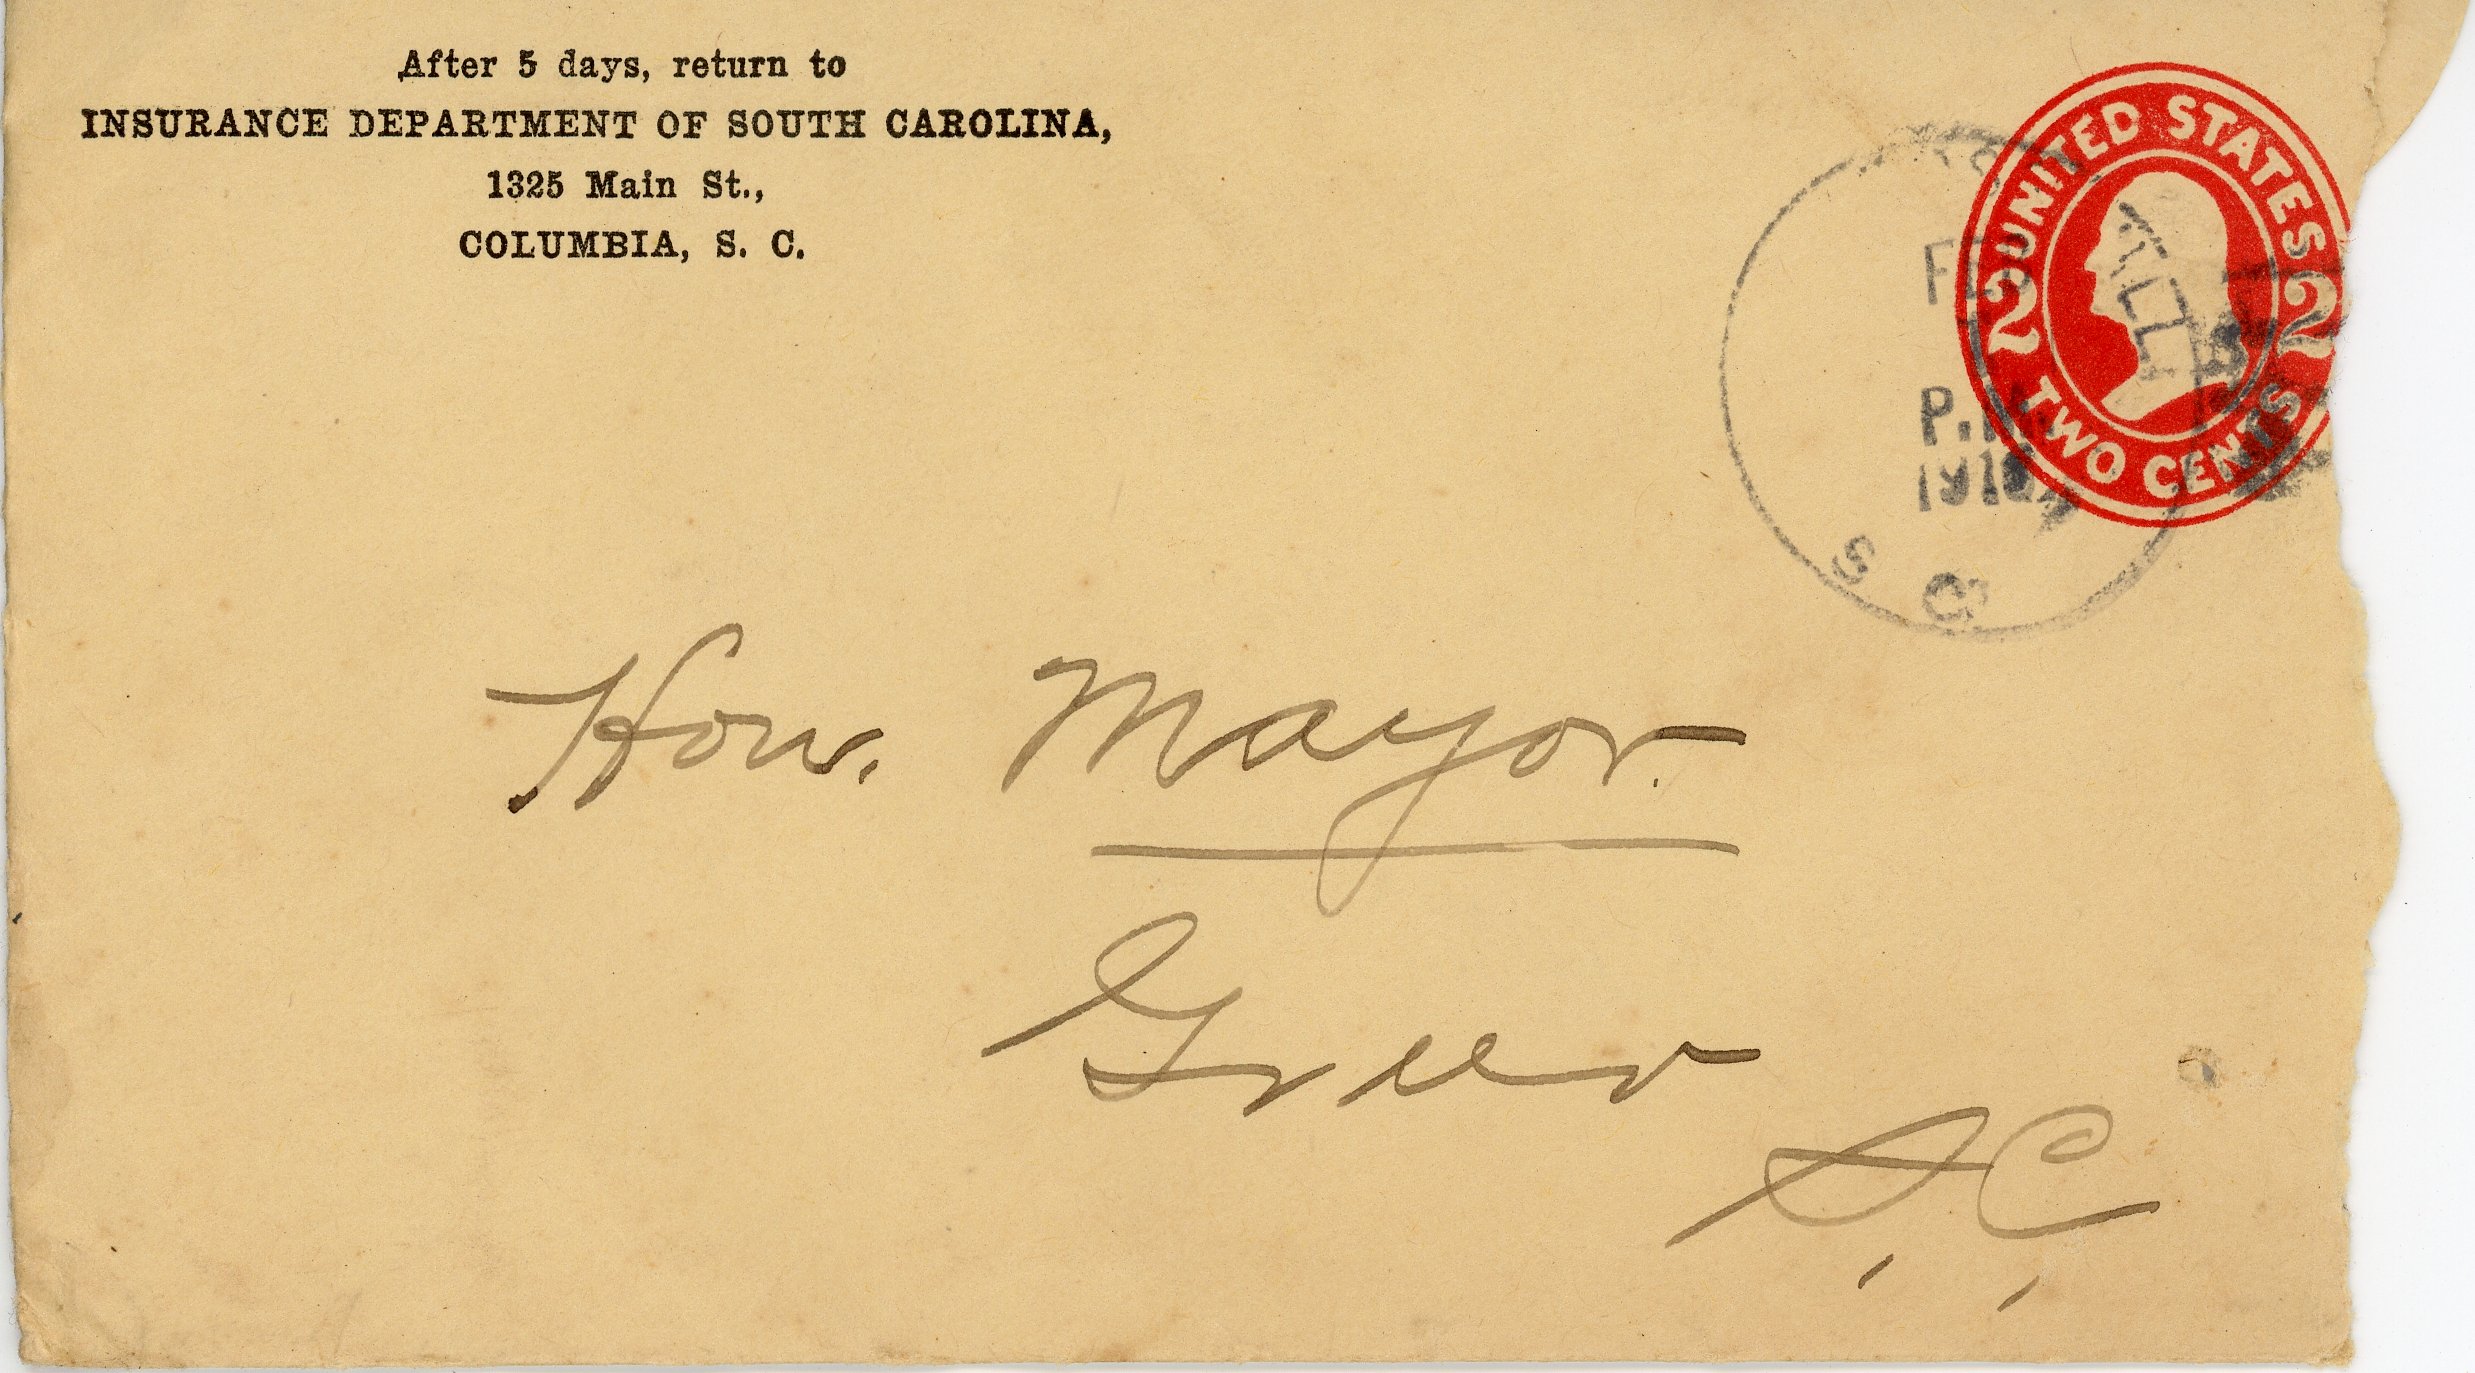 After 5 days, return to
INSURANCE DEPARTMENT OF SOUTH CAROLINA,
1325 Main St.,
COLUMBIA, S. C.
UNITED STATES
2 2
TWO CENTS
FEB
P.M.
S C
Hon. Mayor
Greer
S.C.